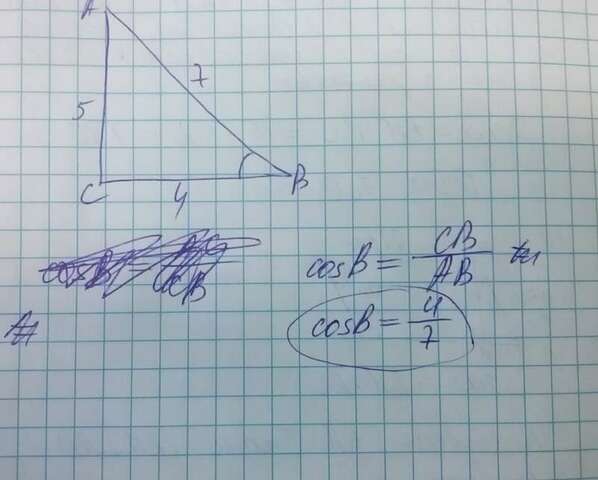 A
7
5
C
B
4
cosB = CB/AB
cosB = 4/7